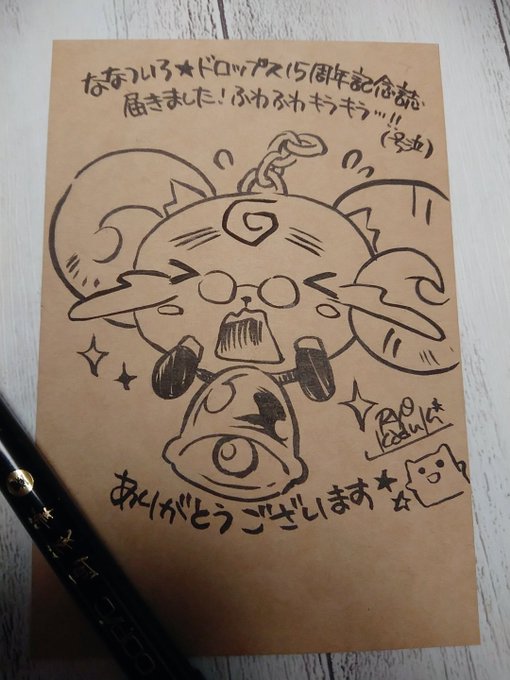 なないろ★ドロップス15周年記念誌
届きました！ふわふわキラキラ…!!
(号泣)
Ryo
Kaduki
ありがとうございます★☆